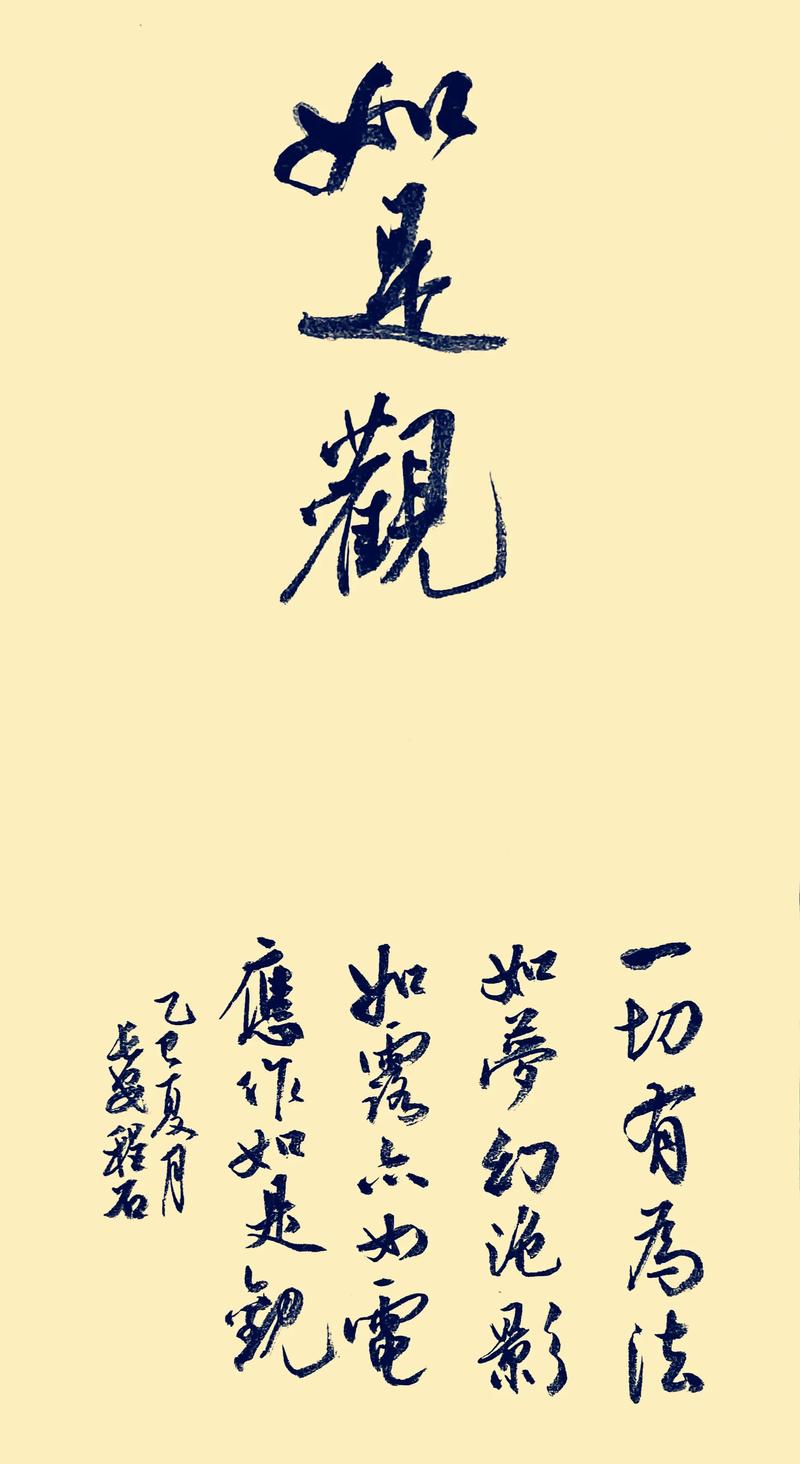 如是觀
一切有為法
如夢幻泡影
如露亦如電
應作如是觀
乙巳夏月
長安程石